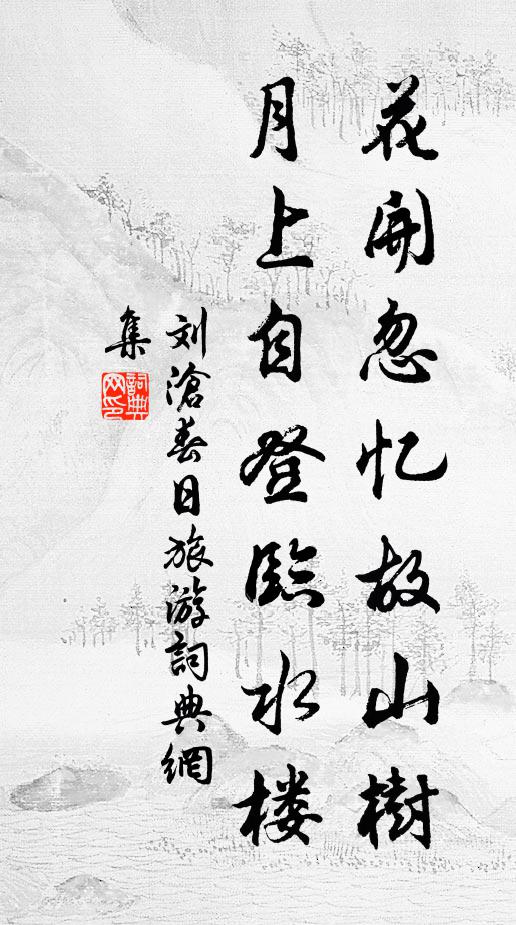 花开忽忆故山樹
月上自登臨水楼
刘滄春日旅游詞典網
集
詞典网印